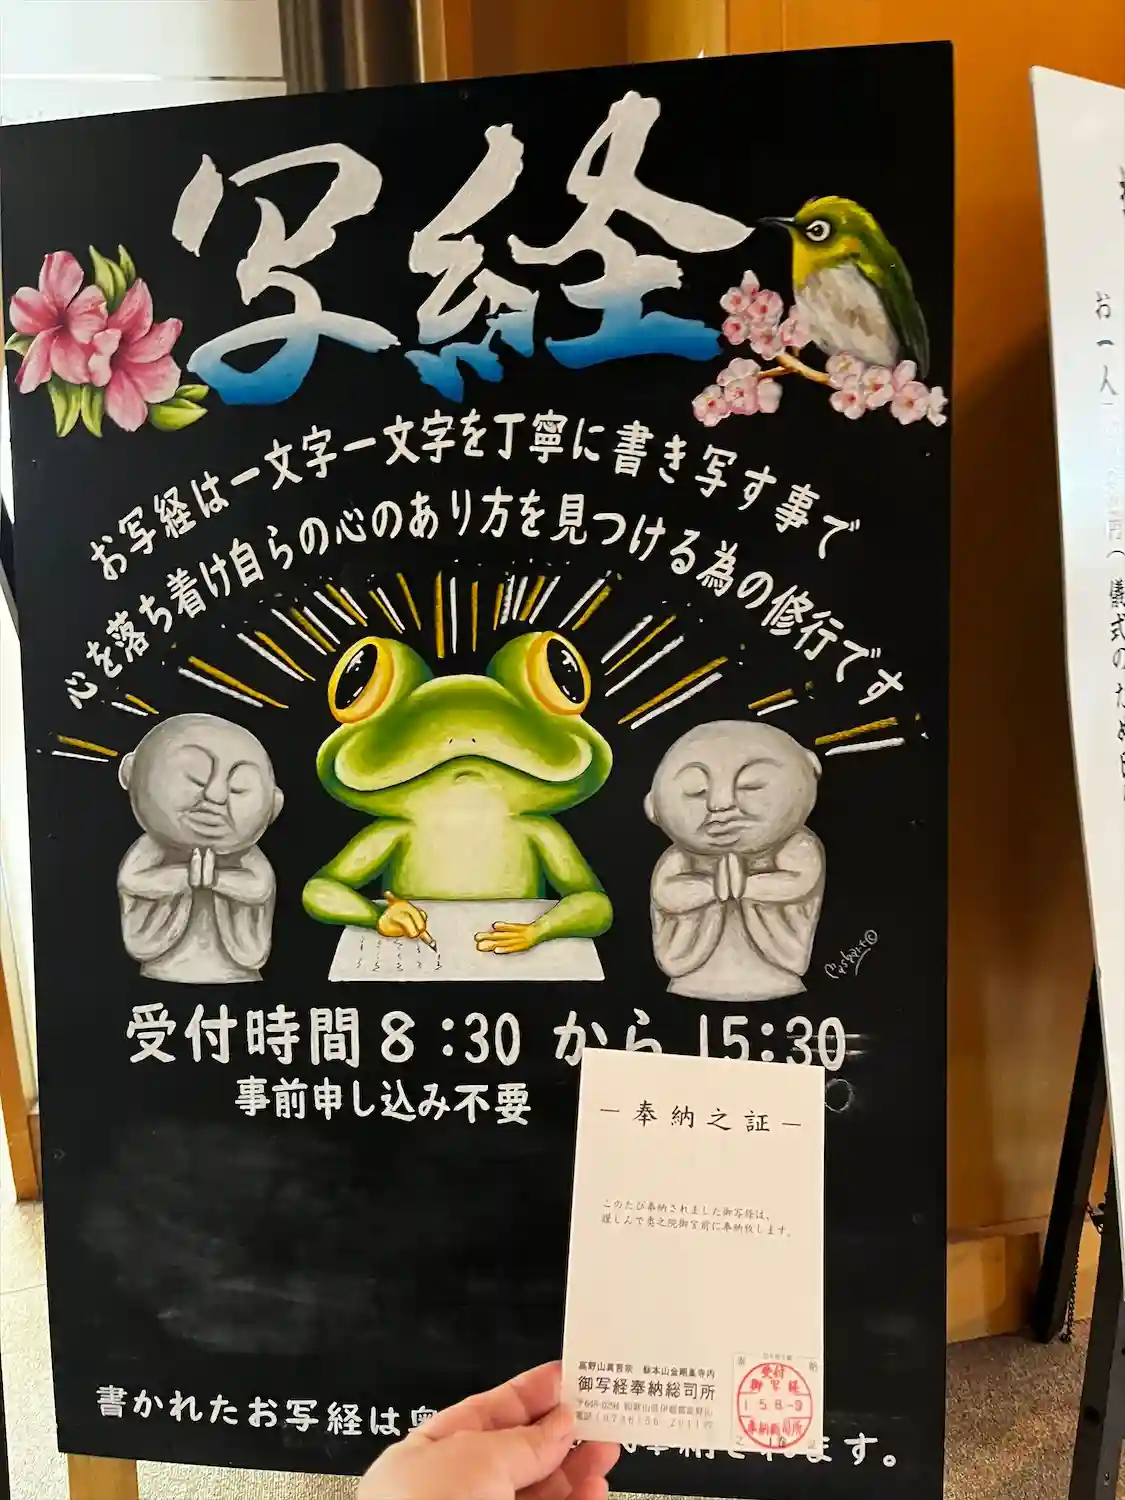 写経
お写経は一文字一文字を丁寧に書き写す事で
心を落ち着け自らの心のあり方を見つける為の修行です
受付時間8:30 から 15:30
事前申し込み不要
書かれたお写経は奥
ます。
―奉納之証―
このたび奉納されました御写経は、
謹しんで奥之院御宮前に奉納致します。
高野山真言宗 総本山金剛峯寺内
御写経奉納総司所
〒648-0294 和歌山県伊都郡高野山
受付
御写経
15.8.-9
お一人
儀式のため